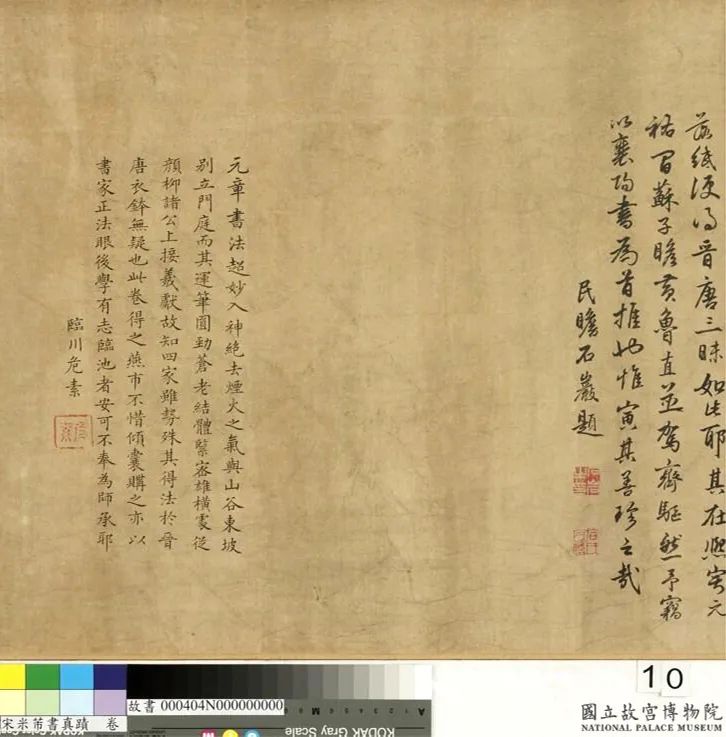 落紙便得晉唐三昧如此耶其在熙寧元
祐間蘇子瞻黃魯直並駕齊驅然予竊
以襄陽書為首推也惟寅其善珍之哉
民瞻石巖題
元章書法超妙入神絕去煙火之氣與山谷東坡
別立門庭而其運筆圓勁蒼老結體緊密雄橫處從
顏柳諸公上接羲獻故知四家雖勢殊其得法於晉
唐衣鉢無疑也此卷得之燕市不惜傾囊購之亦以
書家正法眼後學有志臨池者安可不奉為師承耶
臨川危素
10
故書 000404N000000000
宋米芾書真蹟 卷
KODAK Gray Scale
國立故宮博物院
NATIONAL PALACE MUSEUM